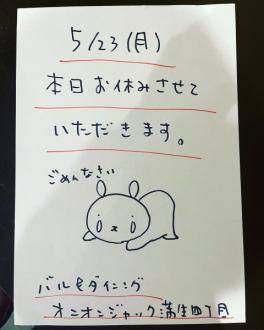 5/23(月)
本日お休みさせて
いただきます。
ごめんなさい
バル&ダイニング
オニオンジャック蒲生四丁目